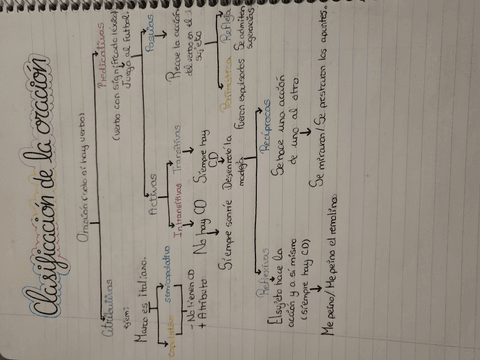 Clasificación de la oración
Oración (solo si hay verbo)
Atributivas
Predicativas
ejem:
Marco es italiano.
(Verbo con significado léxico)
Juego al fútbol.
copulativo
semicopulativo
- No tienen CD
+ Atributo
Activas
Pasivas
Intransitivas
Transitivas
No hay CD
Siempre hay
CD
Siempre sonríe
Desenredó la
madeja
Recae la acción
del verbo en el
sujeto
Refleja
Fueron expulsados
Se admiten
sugerencias
Reflexivas
Recíprocas
El sujeto hace la
acción y a sí mismo
(siempre hay CD)
Me peino/Me peino el remolino.
Se hace una acción
de uno al otro.
Se miraron/Se prestaron los apuntes.